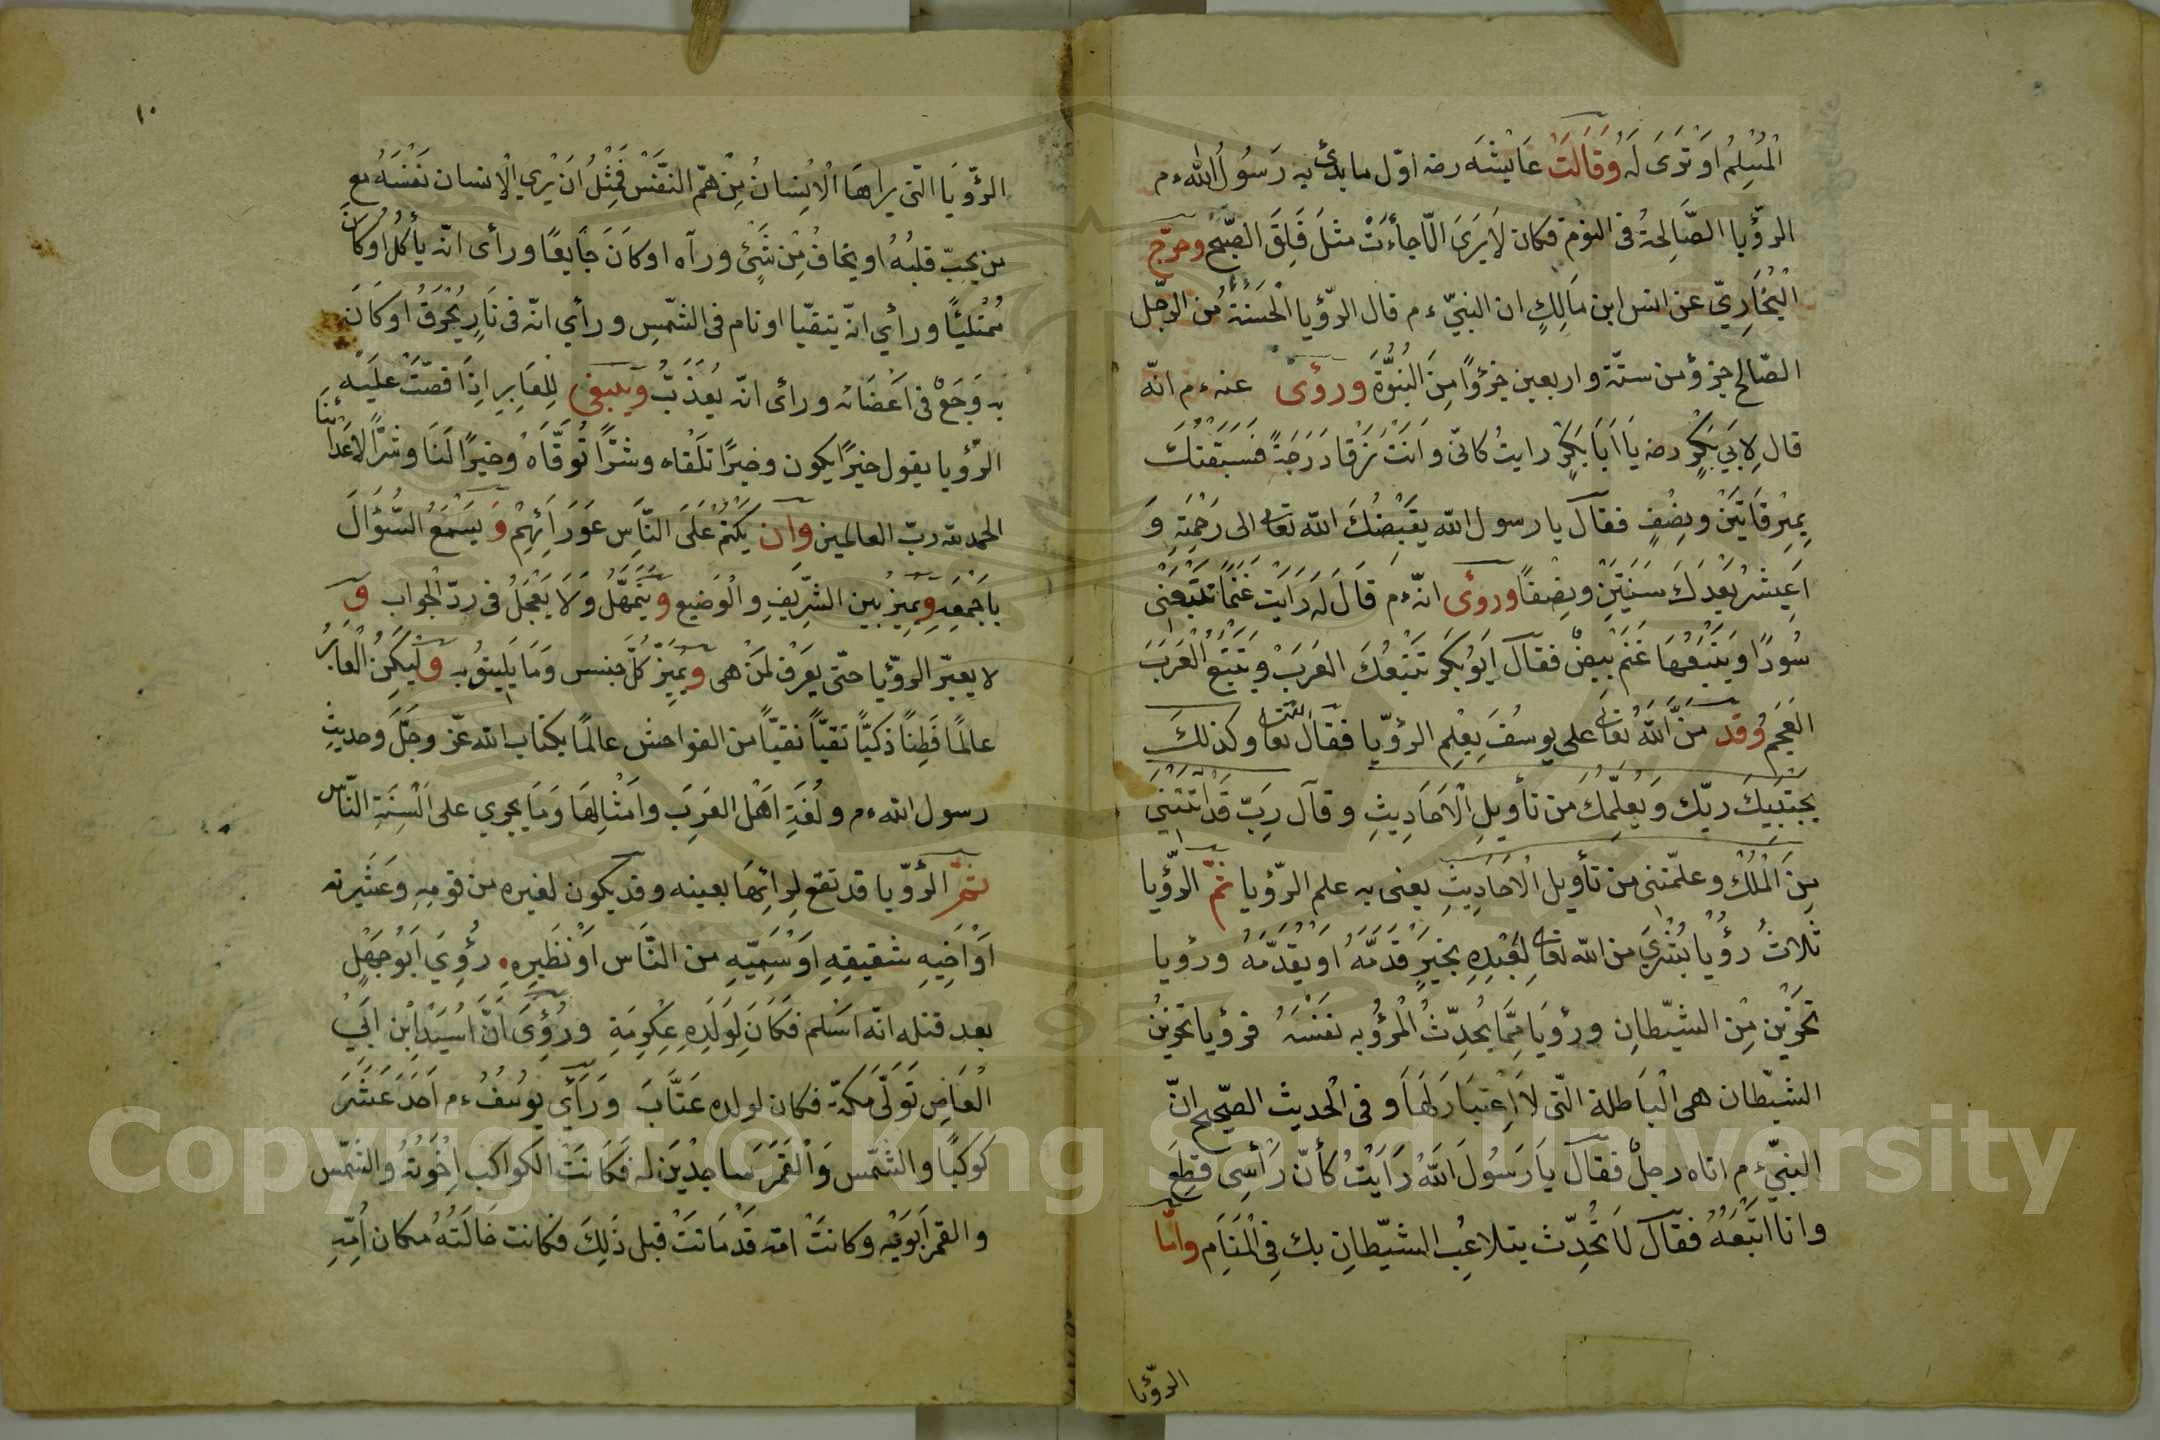 الْمُسْلِمُ اوْ تَرَى لَهُ وَقَالَتْ عَايِشَه رضه اوّل ما بدئ به رَسُولُ اللّٰه ءم
الرؤيا الصَّالِحة فى النوم فكان لَا يَرَىَ الّا جاْءَتْ مثلَ فَلِقَ الصّبْح وخرّج
الْبُخَارِيّ عن انس ابن مَالِكٍ ان النبيّ ءم قال الرّؤيا الْحَسَنَةُ مْن الرجل
الصّالح جزؤ من ستّة واربعين جزؤًا مِنَ النُبُوَّةَ وروُى عنه ءم انّه
قال لِابَي بَكٍرْ رضه يَا اَبَا بَكٍرْ رايتُ كانّى وَانَتْ نَرْقا دَرَجَةً فسَبَقْتُكَ
بِمِرْقَاتَيْنَ ونِصْفٍ فقال يا رسول الله يَقَبْضُكَ الله تعا الى رَحْمَتِهِ وَ
اَعِيشْ بَعْدَكَ سَنَتَيَنِْ ونِصْفاً وروُى انّه ءم قَالَ لَهَ رَايَتَ غَنَمًا تَتْبَعُنْى
سُودًا وَيَتْبَعُهَا غَنَم بَيضٌ فقال اَبَوُ بَكَرٍ تَتْبَعُكَ العَربَ ويَتْبَع الْعَرَبَ
العَجَمُ وَقد مَنَّ اللّٰهُ تعا على يوسُفَ بِعْلِم الرؤيا فقال تعا وكذلك
يَجْتَبِيكَ ربّك وَيُعَلِّمُكَ من تأويلِ الْاَحَادِيثِ وقال رَبّ قَدْ اَتَيْتَنىْ
مِنَ الْمُلْكُ وعلمّتنى من تأويل الْاَحَادِيثِ يعنى به علم الرّؤيا ثمّ الرؤيا
ثَلاثُ رؤْيا بُشْرَي من الله تعا لِعَبْدِهِ بخيرٍ قَدَّمَهُ اَوْ يُقَدّمَهُ ورؤيا
تَحْزِينْ مِنْ الشيّطانِ ورؤيَا مِمَّا يُحدِّثُ الْمرْؤُ به نفسَهُ فرؤيا تحزينُ
الشيّطان هى الْبَاطلة الّتى لَا اِعْتِبَارَ لَهَا وفى الْحديث الصّحيح انّ
النبيّ ءم اتاه رجلٌ فقال يَا رَسُولَ اللّٰه رَاَيْتُ كأنّ رَأسِى قطِعَ
وانا اتّبَعُهُ فقال لَا تُحُدِّث بتلاعِبُ الشيّطانِ بك فِى الْمَنَامِ وامّا
الرؤيا
١٠
الرؤيَا الّتى يراهَا الْانِسَانُ مِنْ همّ النّفسْ فَمِثْلُ اَنْ يَرْي الْانسان نَفْسَهُ مع
من يحبّ قلبُهُ او يخافُ مِنْ شَىْءٍ ورآه او كَانَ جَايعًا ورأى انّه يأكلُ او كَانَ
مُمْتليئًا ورأي انّه يتقيّا او نام فى الشمسِ ورأي انّه فى نَارٍ يُحْرَقُ اوْ كَانَ
به وَجَعْ فى اَعْضَائه ورأى انّه يُعَذَبُّ وينبغى لِلْعَابِرِ اِذَا قصّتْ عَلَيْهِ
الرّؤيا يقول خيرًا يكون وخيرًا تلَقْاه وشرًّا تُوَقّاَهْ وخيرًا لَنَا وشرًّا لِاعْدَائنَا
الحمد لله ربّ العالمين وان يَكْتُمْ عَلَى النَّاسِ عَوَرَاتِهِمْ وَيَسَمْعُ السُّؤَالَ
باَجْمَعِهِ ويميز بين الشرِّيفِ والْوَضيع ويَتَمَهَّلُ وَلَا يَعْجَلُ فى ردّ الْجواب و
لا يعبّر الرؤيا حتّى يعَرْف لمَنْ هى وَيميّزَ كلّ جنس وَمَا يَليقُ به وَلْيَكُنْ الْعَابرُ
عالمًا فَطِنًا ذكيًّا تقيّاً نقيّاً من الفواحش عالمًا بكتاب الله عزّ وجَلَّ وحديثِ
رسول الله ءم ولُغَةِ اَهْل العَرِبَ وامْثالِهَا وَمَا يجرى على الْسِنَةِ النّاس
ثمّ الرؤيا قد تقع لِرائِهَا بعينه وقد يكون لغيره من قومِهِ وعَشيرته
اَوْ اَخِيهِ شقيقِهِ اَوْ سَمَيّهِ من النّاس اَوْ نَظِيرِهِ رُؤِيَ اَبَوُ جَهْلٍ
بعد قتله انّه اسلم فكَانَ لِوَلَدِهِ عِكرِمَةِ ورُؤِىَ اَنَّ اُسَيْدَ اِبْن ابَيْ
الْعَاصِ تَوَلّى مَكّة فكان لولده عَتّابَ وَرَأي يوسُفُ ءم اَحَدَ عَشَرَ
كَوكَبًا والشمسَ وَالْقمَرَ سَاجِدْينَ له فكَانَتْ الكواكب اِخْوَتُهُ والشّمسَ
والقمر اَبَوَيْهِ وكانَتْ امّه قَدْ مَاتَتْ قبل ذَلِكَ فكانت خَالَتُهُ مكان اُمِّهِ
Copyright © King Saud University